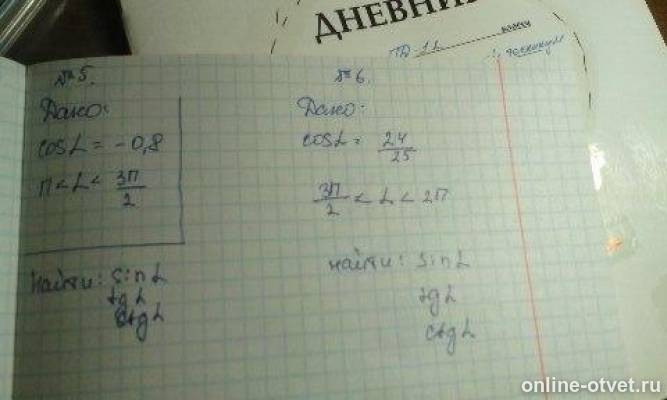 ДНЕВНИ
класса
ТД-11
техникум
№5.
Дано:
cos L = -0,8
π < L < 3π/2
найти: sin L
tg L
ctg L
№6.
Дано:
cos L = 24/25
3π/2 < L < 2π
найти: sin L
tg L
ctg L
online-otvet.ru